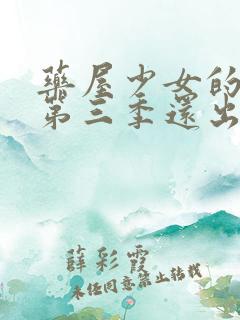 藥屋少女的
第三季還出
薛彩霞
未經同意禁止轉載